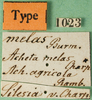 Type 1023
melas Burm.
Acheta melas
Ach. agricola
Ramb.
Silesia v. Charp.